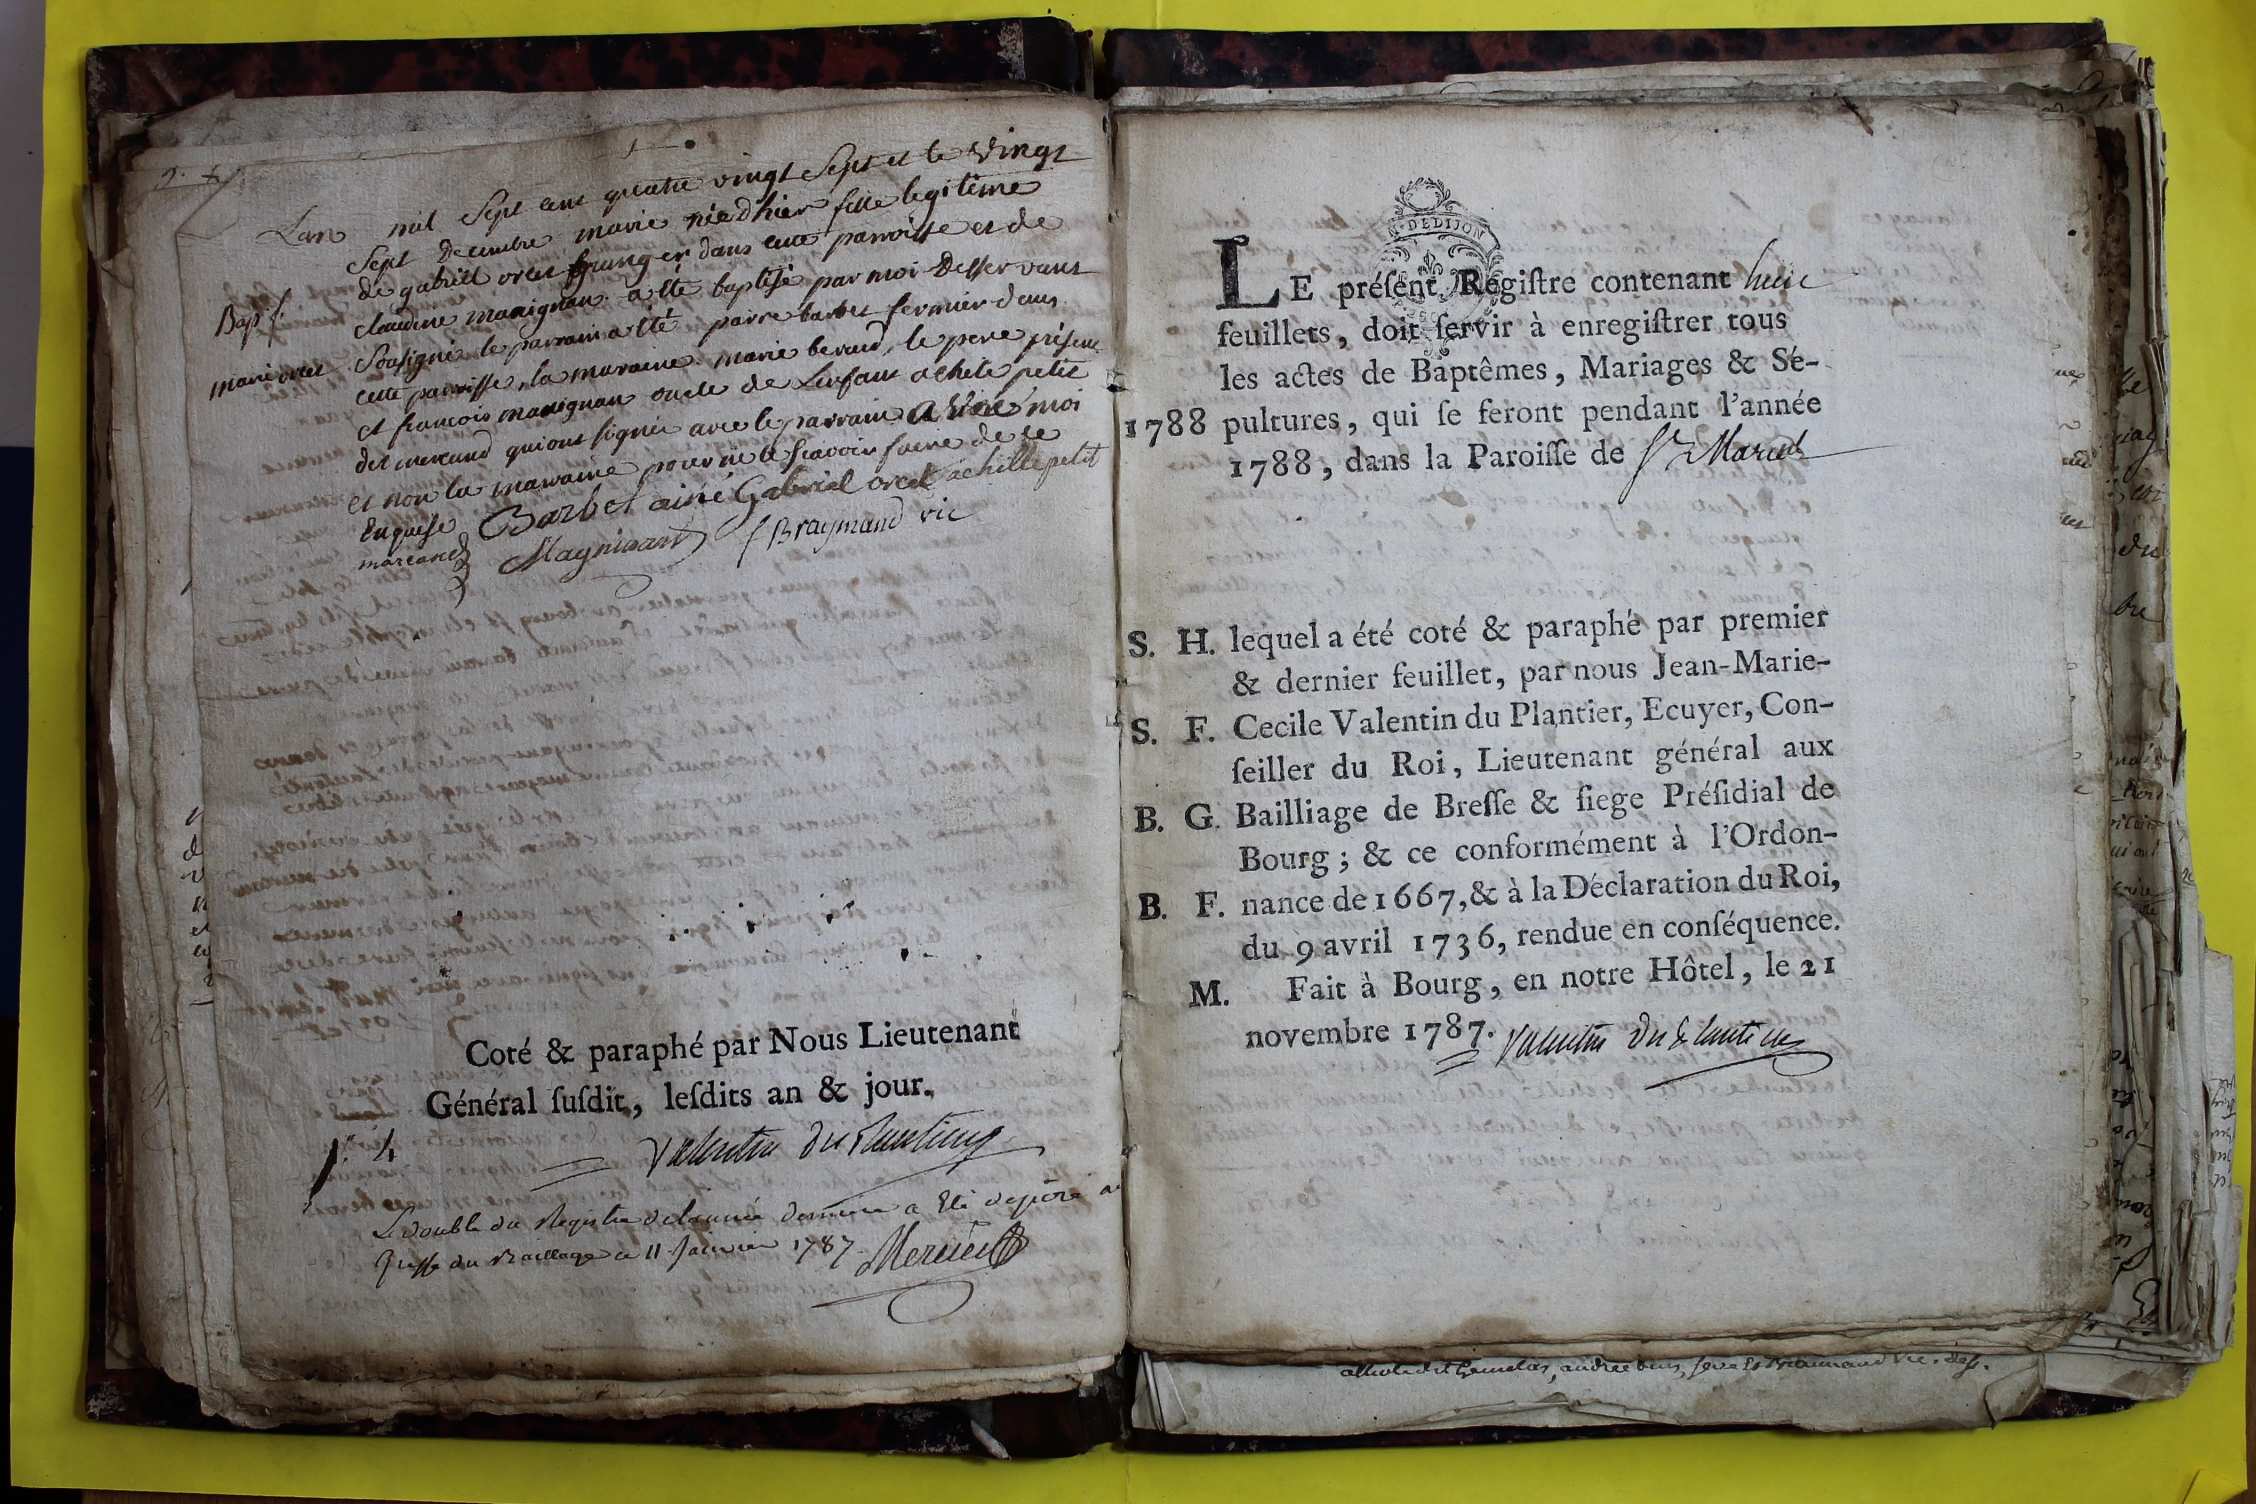 Lan mil Sept cent quatre vingt Sept et le vingt
Sept Decembre marie née d'hier fille legitime
de gabriel orcet granger dans cette parroisse et de
claudine manignan a été baptisé par moi Desservant
Sousigné le parrain a été pierre barbet fermier dans
cette parroisse, la maraine marie beraud, le pere présent
et francois manignan oncle de Lenfant achile petit
det mercand qui ont signés avec le parrain avec moi
et non la maraine pour ne le scavoir faire de ce
Enquise
Bapt.
marie orcet
Barbet ainé Gabriel orcet achille petit
marcand Magninant f Braymand vic
Coté & paraphé par Nous Lieutenant
Général ſuſdit, leſdits an & jour.
Valentin du Plantier
Le double du Registre de l'année derniere a Eté déposé au
Greffe du Baillage ce 11 Janvier 1787. Mercier
N. DE DIJON
LE préſent Regiſtre contenant huit
feuillets, doit ſervir à enregiſtrer tous
les actes de Baptêmes, Mariages & Sé-
1788 pultures, qui ſe feront pendant l'année
1788, dans la Paroiſſe de St Marcel
S. H. lequel a été coté & paraphé par premier
& dernier feuillet, par nous Jean-Marie-
S. F. Cecile Valentin du Plantier, Ecuyer, Con-
ſeiller du Roi, Lieutenant général aux
B. G. Bailliage de Breſſe & ſiege Préſidial de
Bourg ; & ce conformément à l'Ordon-
B. F. nance de 1667, & à la Déclaration du Roi,
du 9 avril 1736, rendue en conſéquence.
M. Fait à Bourg, en notre Hôtel, le 21
novembre 1787. Valentin du Plantier